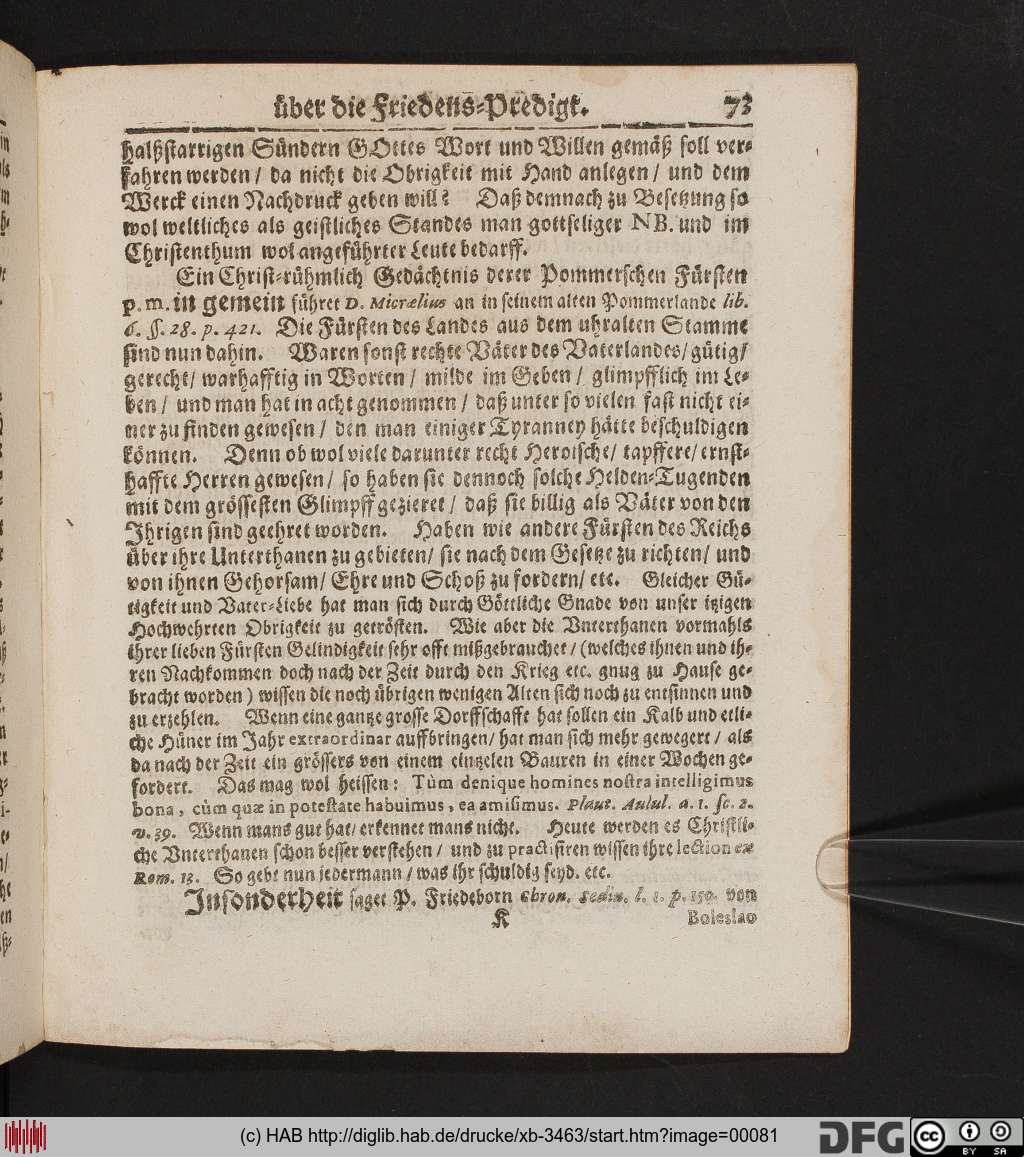 über die Friedens-Predigt. 73
halßstarrigen Sündern GOttes Wort und Willen gemäß soll ver-
fahren werden / da nicht die Obrigkeit mit Hand anlegen / und dem
Werck einen Nachdruck geben will? Daß demnach zu Besetzung so
wol weltliches als geistliches Standes man gottseliger NB. und im
Christenthum wol angeführter Leute bedarff.
Ein Christ-rühmlich Gedächtnis derer Pommerschen Fürsten
p. m. in gemein führet D. Micrælius an in seinem alten Pommerlande lib.
6. §. 28. p. 421. Die Fürsten des Landes aus dem uhralten Stamme
sind nun dahin. Waren sonst rechte Väter des Vaterlandes / gütig /
gerecht / warhafftig in Worten / milde im Geben / glimpfflich im Le-
ben / und man hat in acht genommen / daß unter so vielen fast nicht ei-
ner zu finden gewesen / den man einiger Tyranney hätte beschuldigen
können. Denn ob wol viele darunter recht Heroische / tapffere / ernst-
haffte Herren gewesen / so haben sie dennoch solche Helden-Tugenden
mit dem grössesten Glimpff gezieret / daß sie billig als Väter von den
Ihrigen sind geehret worden. Haben wie andere Fürsten des Reichs
über ihre Unterthanen zu gebieten / sie nach dem Gesetze zu richten / und
von ihnen Gehorsam / Ehre und Schoß zu fordern / etc. Gleicher Gü-
tigkeit und Vater-Liebe hat man sich durch Göttliche Gnade von unser itzigen
Hochwehrten Obrigkeit zu getrösten. Wie aber die Vnterthanen vormahls
ihrer lieben Fürsten Gelindigkeit sehr offt mißgebrauchet / (welches ihnen und ih-
ren Nachkommen doch nach der Zeit durch den Krieg etc. gnug zu Hause ge-
bracht worden) wissen die noch übrigen wenigen Alten sich noch zu entsinnen und
zu erzehlen. Wenn eine gantze grosse Dorffschafft hat sollen ein Kalb und etli-
che Hüner im Jahr extraordinar auffbringen / hat man sich mehr gewegert / als
da nach der Zeit ein grössers von einem eintzelen Bauren in einer Wochen ge-
fordert. Das mag wol heissen: Tùm denique homines nostra intelligimus
bona, cùm quæ in potestate habuimus, ea amisimus. Plaut. Aulul. a. 1. sc. 2.
v. 39. Wenn mans gut hat / erkennet mans nicht. Heute werden es Christli-
che Vnterthanen schon besser verstehen / und zu practisiren wissen ihre lection ex
Rom. 13. So gebt nun jedermann / was ihr schuldig seyd. etc.
Insonderheit saget P. Friedeborn Chron. Sedin. l. 1. p. 150. von
K Boleslao
(c) HAB http://diglib.hab.de/drucke/xb-3463/start.htm?image=00081
DFG
cc BY SA